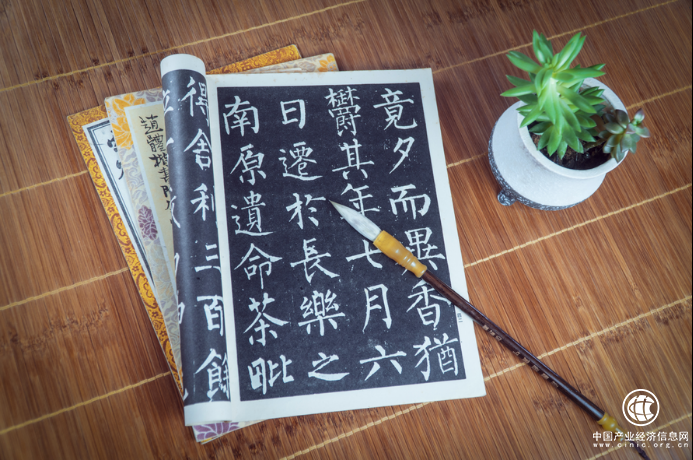 竟夕而異香猶
欝其年七月六
日遷於長樂之
南原遺命茶毗
得舍利三百餘
中国产业经济信息网
www.cinic.org.cn